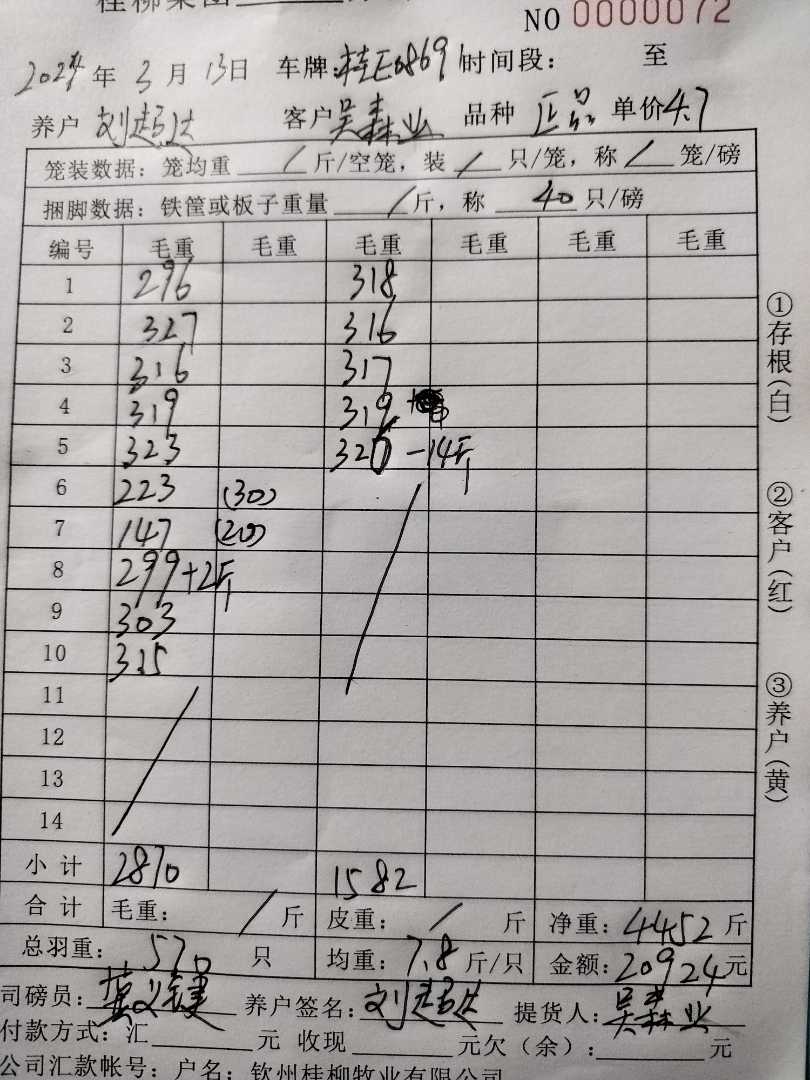 桂柳集团
NO 0000072
2024年 3月 13日 车牌: 时间段: 至
养户 刘 客户 吴森业 品种 正品 单价4.7
笼装数据: 笼均重 / 斤/空笼, 装 / 只/笼, 称 / 笼/磅
捆脚数据: 铁筐或板子重量 / 斤, 称 40 只/磅
编号 毛重 毛重 毛重 毛重 毛重 毛重
1 296 318
2 327 316
3 316 317
4 319 319
5 323 326 -14斤
6 223 (30)
7 147 (20)
8 299+2斤
9 303
10 315
11
12
13
14
小计 2870 1582
合计 毛重: / 斤 皮重: / 斤 净重: 4452 斤
总羽重: 570 只 均重: 7.8 斤/只 金额: 20924元
司磅员: 养户签名: 刘 提货人: 吴森业
付款方式: 汇 元 收现 元欠(余): 元
公司汇款帐号: 户名: 钦州桂柳牧业有限公司
①存根(白)
②客户(红)
③养户(黄)